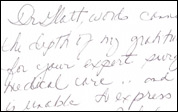 Dr. Hatt, words cann
the depth of my gratitu
for your expert surg
medical care .. and
is unable to express